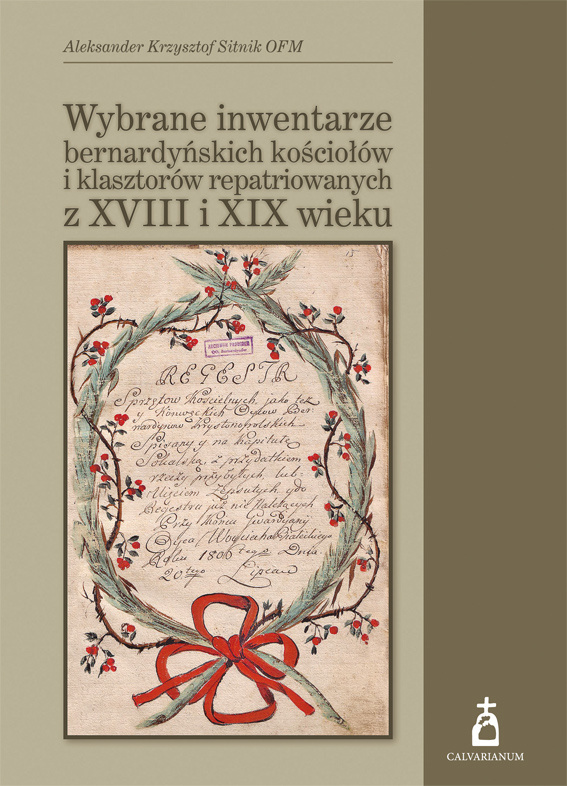 Aleksander Krzysztof Sitnik OFM
Wybrane inwentarze
bernardyńskich kościołów
i klasztorów repatriowanych
z XVIII i XIX wieku
15
REGESTR
Sprzętow Kościelnych, jako też
y Konwęckich Oycow Ber-
nardynow Krystonopolskich
Spisany y na Kapitułę
Sokalską z przydatkiem
rzeczy przybyłych, lub
Zepsutych, ydo
Regestru już nie Należących
Przy Końcu Gwardyany
Oyca Woyciecha
Roku 1806 tego Dnia
20 tego Lipca
CALVARIANUM